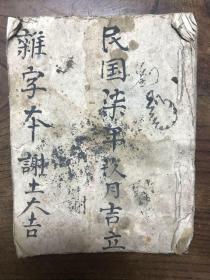 民国柒年玖月吉立
雜字本謝土大吉